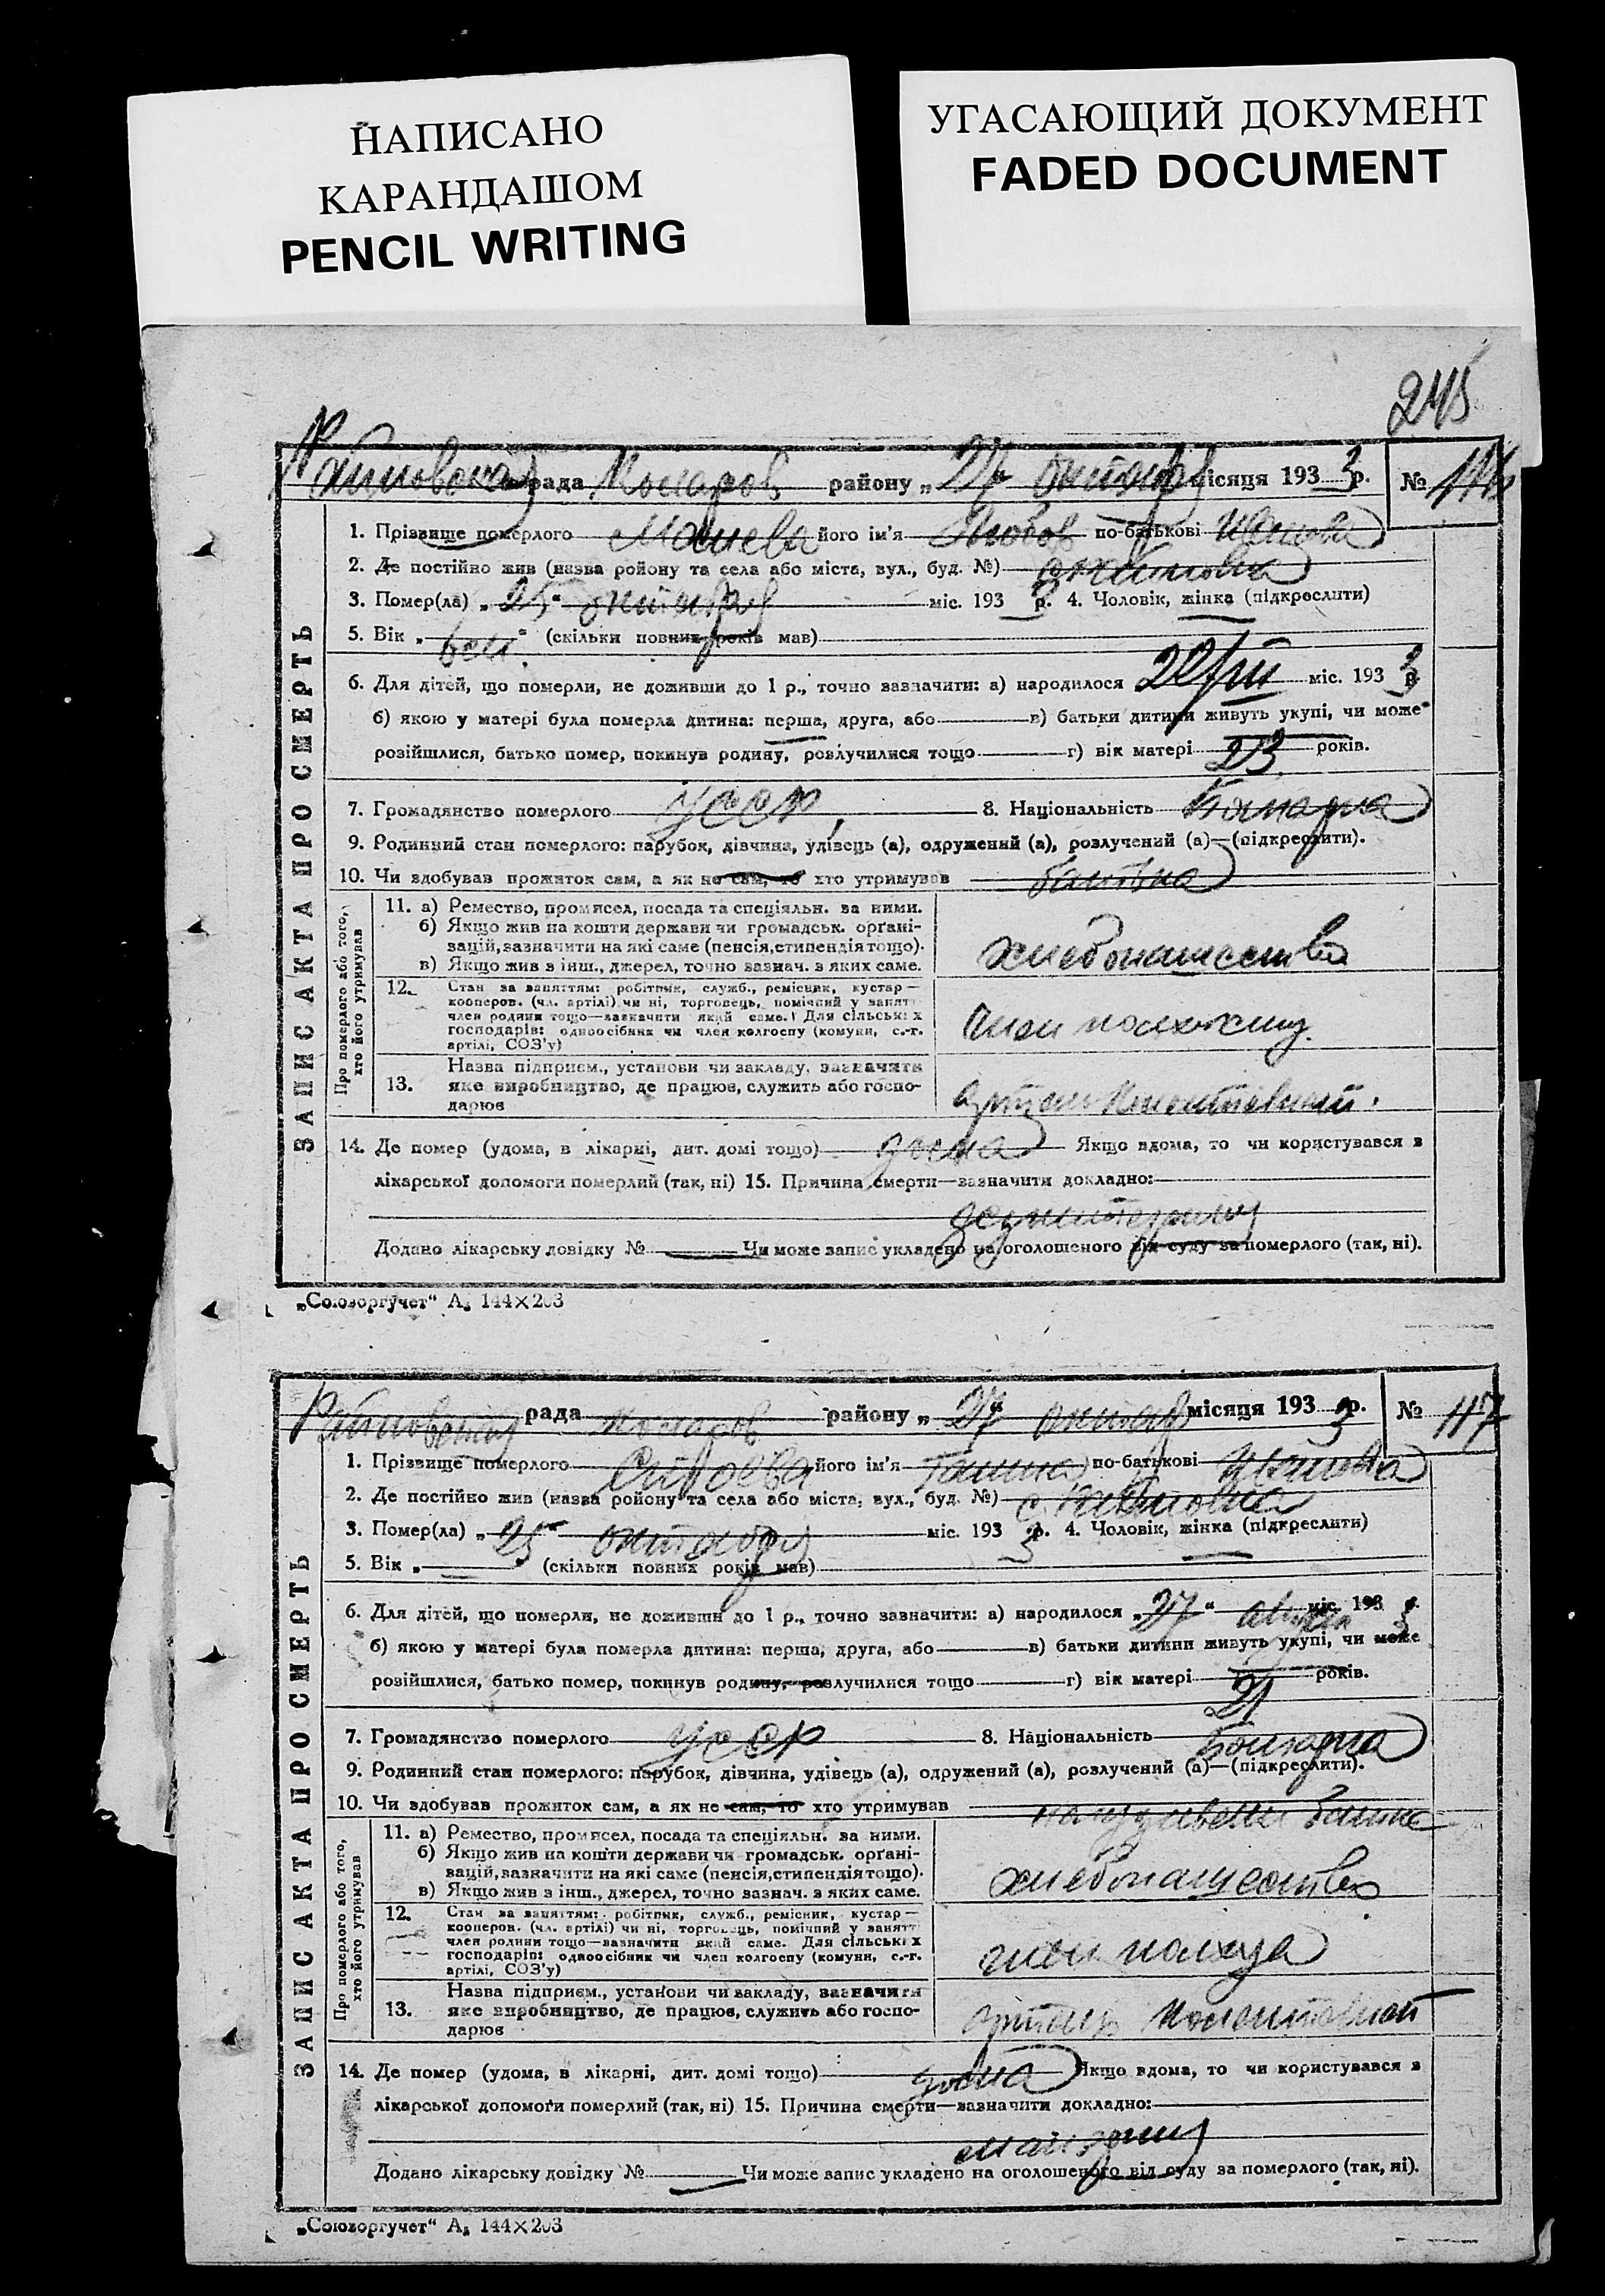 НАПИСАНО
КАРАНДАШОМ
PENCIL WRITING
УГАСАЮЩИЙ ДОКУМЕНТ
FADED DOCUMENT
245
рада району „27 октября місяця 1933 р. № 116
1. Прізвище померлого його ім'я Любов по-батькові
2. Де постійно жив (назва ройону та села або міста, вул., буд. №)
3. Помер(ла) „25“ октября міс. 193 3 р. 4. Чоловік, жінка (підкреслити)
5. Вік „ “ (скільки повних років мав)
6. Для дітей, що померли, не доживши до 1 р., точно зазначити: а) народилося міс. 193 3 р.
б) якою у матері була померла дитина: перша, друга, або в) батьки дитини живуть укупі, чи може
розійшлися, батько помер, покинув родину, розлучилися тощо г) вік матері 23 років.
7. Громадянство померлого УССР 8. Національність
9. Родинний стан померлого: парубок, дівчина, удівець (а), одружений (а), розлучений (а)—(підкреслити).
10. Чи здобував прожиток сам, а як не сам, то хто утримував
11. а) Ремество, промисел, посада та спеціяльн. за ними.
б) Якщо жив на кошти держави чи громадськ. органі-
зацій, зазначити на які саме (пенсія, стипендія тощо).
в) Якщо жив з інш., джерел, точно зазнач. з яких саме.
хлебопашество
12. Стан за заняттям: робітник, служб., ремісник, кустар—
кооперов. (чл. артілі) чи ні, торговець, помічний у занятт
член родини тощо—зазначити який саме. Для сільських
господарів: одноосібник чи член колгоспу (комуни, с.-г.
артілі, СОЗ'у)
член
13. Назва підприєм., установи чи закладу, зазначити
яке виробництво, де працює, служить або госпо-
дарює
14. Де помер (удома, в лікарні, дит. домі тощо) дома Якщо вдома, то чи користувався з
лікарської допомоги померлий (так, ні) 15. Причина смерти—зазначити докладно:
Додано лікарську довідку № Чи може запис укладено на оголошеного від суду за померлого (так, ні).
ЗАПИС АКТА ПРО СМЕРТЬ
Про померлого або того,
хто його утримував
„Союзоргучет“ А₅ 144×203
рада району „27“ октября місяця 193 3 р. № 117
1. Прізвище померлого його ім'я Ганна по-батькові
2. Де постійно жив (назва ройону та села або міста, вул., буд. №)
3. Помер(ла) „25“ октября міс. 193 3 р. 4. Чоловік, жінка (підкреслити)
5. Вік „ (скільки повних років мав)
6. Для дітей, що померли, не доживши до 1 р., точно зазначити: а) народилося „27“ міс. 193 3 р.
б) якою у матері була померла дитина: перша, друга, або в) батьки дитини живуть укупі, чи може
розійшлися, батько помер, покинув родину, розлучилися тощо г) вік матері 21 років.
7. Громадянство померлого УССР 8. Національність
9. Родинний стан померлого: парубок, дівчина, удівець (а), одружений (а), розлучений (а)—(підкреслити).
10. Чи здобував прожиток сам, а як не сам, то хто утримував
11. а) Ремество, промисел, посада та спеціяльн. за ними.
б) Якщо жив на кошти держави чи громадськ. органі-
зацій, зазначити на які саме (пенсія, стипендія тощо).
в) Якщо жив з інш., джерел, точно зазнач. з яких саме.
хлебопашество
12. Стан за заняттям: робітник, служб., ремісник, кустар—
кооперов. (чл. артілі) чи ні, торговець, помічний у занятт
член родини тощо—зазначити який саме. Для сільських
господарів: одноосібник чи член колгоспу (комуни, с.-г.
артілі, СОЗ'у)
член колхоза
13. Назва підприєм., установи чи закладу, зазначити
яке виробництво, де працює, служить або госпо-
дарює
14. Де помер (удома, в лікарні, дит. домі тощо) дома Якщо вдома, то чи користувався з
лікарської допомоги померлий (так, ні) 15. Причина смерти—зазначити докладно:
Додано лікарську довідку № Чи може запис укладено на оголошеного від суду за померлого (так, ні).
ЗАПИС АКТА ПРО СМЕРТЬ
Про померлого або того,
хто його утримував
„Союзоргучет“ А₅ 144×203